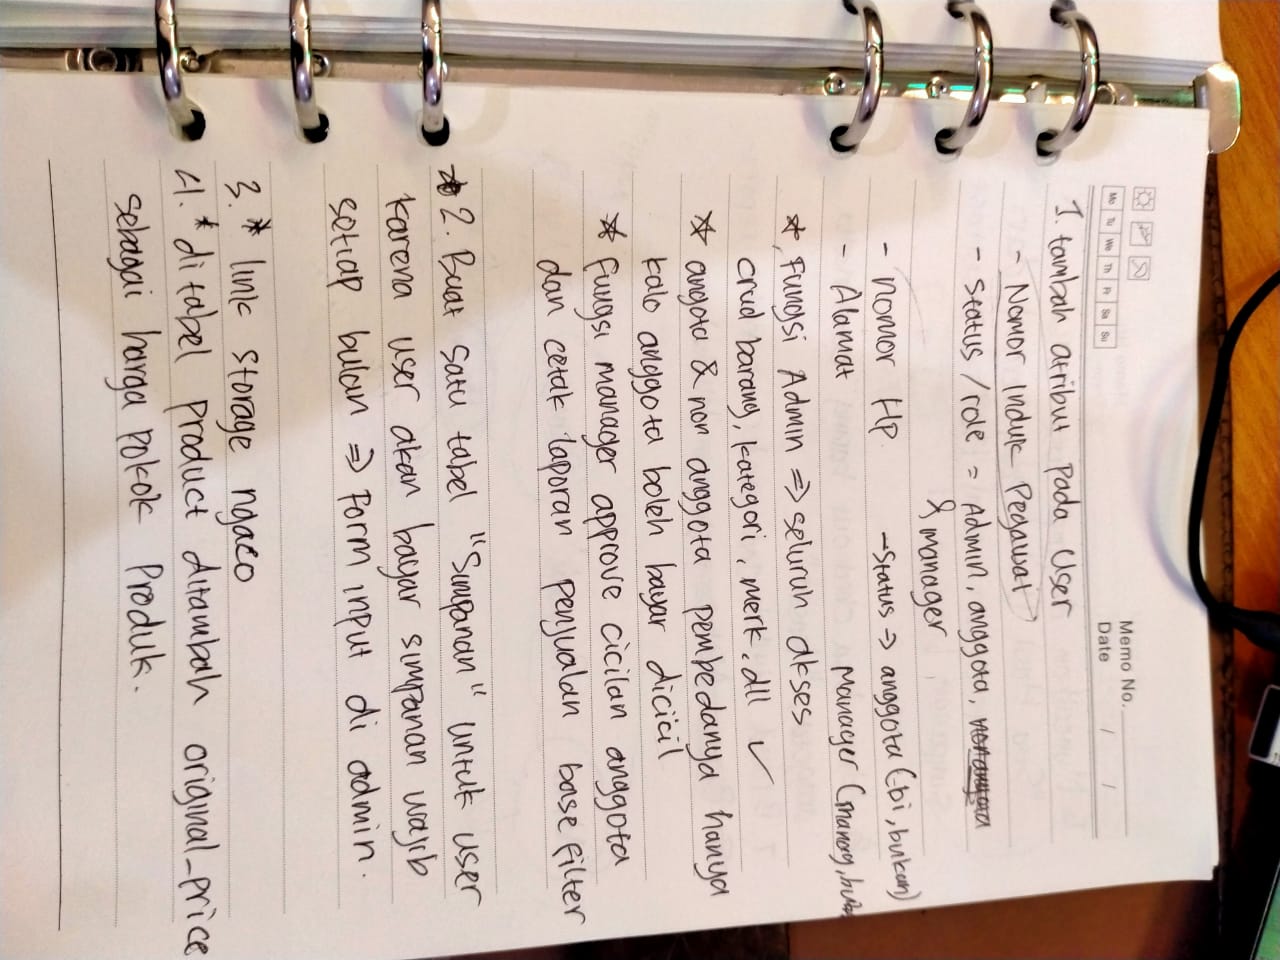 Memo No.
Date / /
Mo Tu We Th Fr Sa Su
1. tambah atribut pada User
- Nomor Induk Pegawai
- Status / role = Admin, anggota,
& manager
- nomor HP -status => anggota (bi, bukan)
- Alamat Manager (manag, buk
* Fungsi Admin => seluruh akses
crud barang, kategori, merk, dll ✓
* anggota & non anggota pembedanya hanya
kalo anggota boleh bayar dicicil
* fungsi manager approve cicilan anggota
dan cetak laporan penjualan base filter
2. Buat satu tabel "Simpanan" untuk user
karena user akan bayar simpanan wajib
setiap bulan => Form input di admin.
3. * link storage ngaco
4. * di tabel product ditambah original_price
sebagai harga pokok Produk.